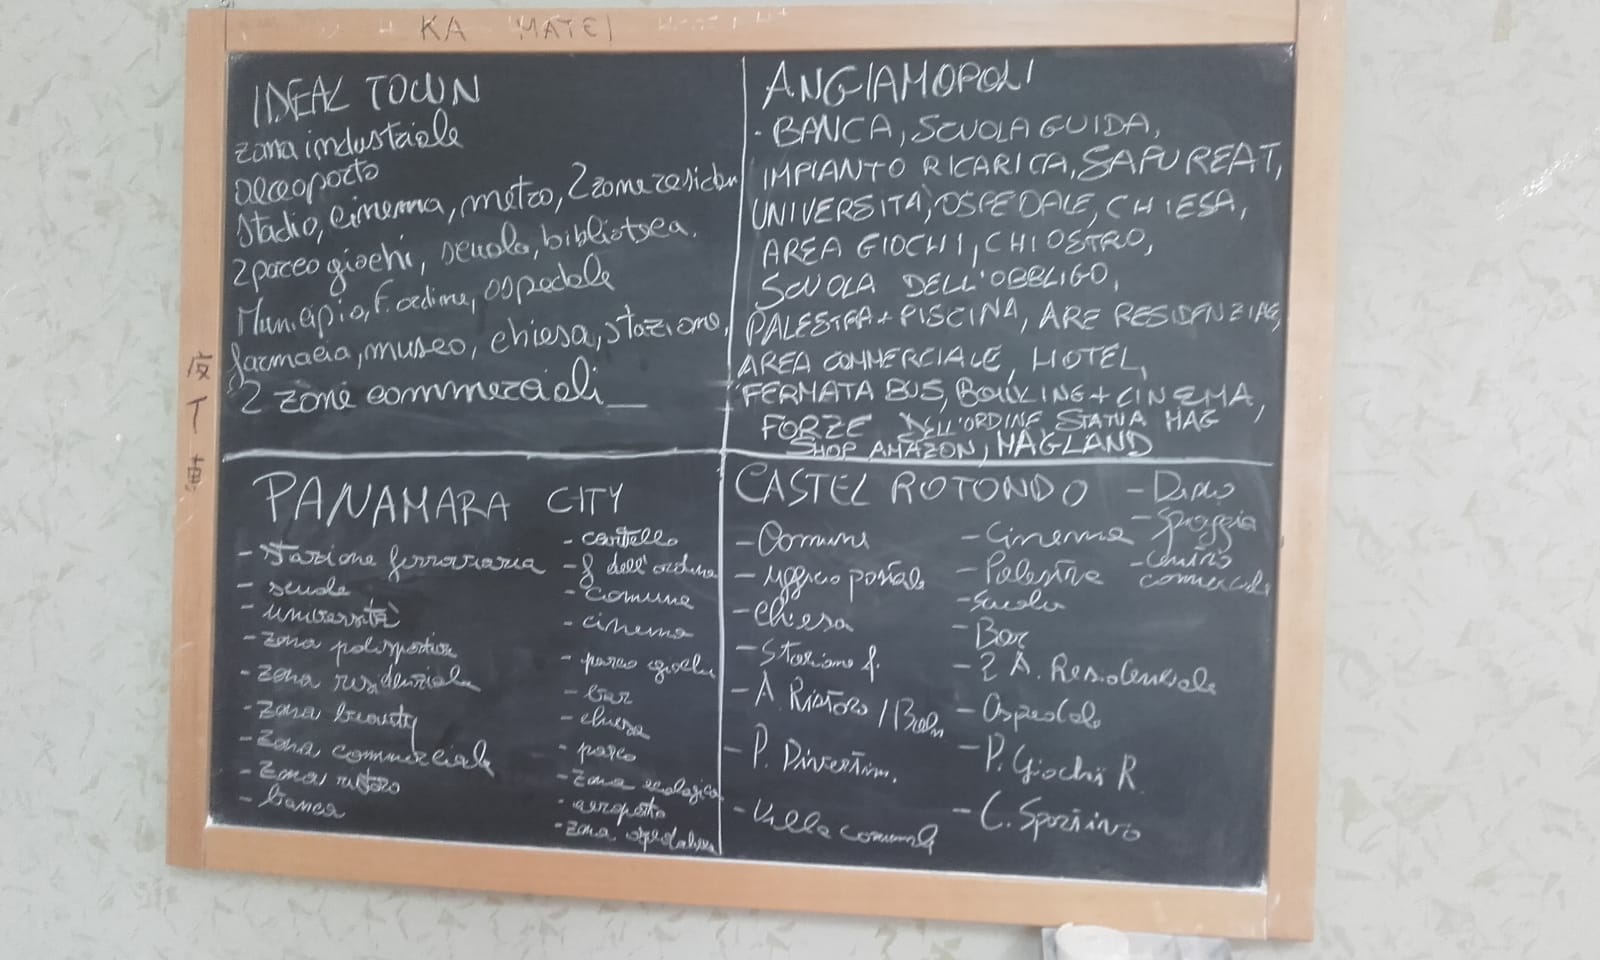 KA MATEI
IDEAL TOWN
zona industriale
aeroporto
Stadio, cinema, metro, 2 zone residen
2 parco giochi, scuola, biblioteca.
Municipio, F. ordine, ospedale
farmacia, museo, chiesa, stazione,
2 zone commerciali
ANGIAMOPOLI
- BANCA, SCUOLA GUIDA,
IMPIANTO RICARICA, SAFUREAT,
UNIVERSITÀ, OSPEDALE, CHIESA,
AREA GIOCHI, CHIOSTRO,
SCUOLA DELL'OBBLIGO,
PALESTRA + PISCINA, ARE RESIDENZIALE,
AREA COMMERCIALE, HOTEL,
FERMATA BUS, BOWLING + CINEMA,
FORZE DELL'ORDINE, STATUA MAG
SHOP AMAZON, MAGLAND
PANAMARA CITY
- stazione ferroviaria
- scuole
- università
- zona polisportiva
- zona residenziale
- zona beauty
- zona commerciale
- zona ristoro
- banca
- castello
- f dell'ordine
- comune
- cinema
- parco giochi
- bar
- chiesa
- parco
- zona ecologica
- aeroporto
- zona ospedaliera
CASTEL ROTONDO
- Comune
- Ufficio postale
- Chiesa
- Stazione f.
- A. Ristoro /
- P. Divertim.
- Villa comunale
- Cinema
- Palestra
- Scuola
- Bar
- 2 A. Residenziale
- Ospedale
- P. Giochi R.
- C. Sportivo
- Disco
- Spiaggia
- Centro
commerciale